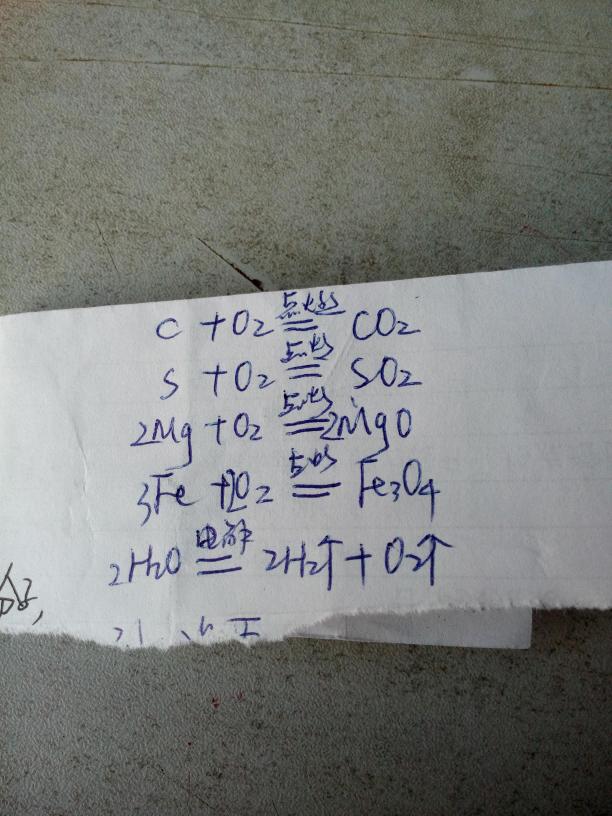 C + O2 点燃 = CO2
S + O2 点燃 = SO2
2Mg + O2 点燃 = 2MgO
3Fe + 2O2 点燃 = Fe3O4
2H2O 电解 = 2H2↑ + O2↑